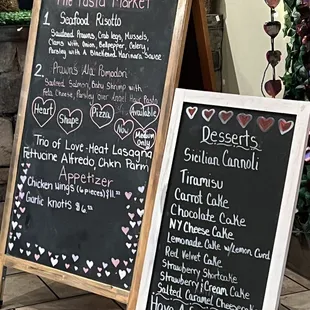 The Pasta Market
1. Seafood Risotto
Sauteed Prawn, Crab legs, Mussels,
Clams with Onion, Bellpepper, Celery,
Parsley with A Herb Marinara Sauce
2. Prawns Ala' Pomodori
Sauteed Salmon, Baby Shrimp with
Feta Cheese, Parsley over
Heart
Shape
Pizza
Now
Available
Medium
Only
Trio of Love-Meat Lasagna
Fettucine Alfredo, Chkn Parm
Appetizer
Chicken wings (6 pieces) $11.99
Garlic knots $6.99
Desserts
Sicilian Cannoli
Tiramisu
Carrot Cake
Chocolate Cake
NY Cheese Cake
Lemonade Cake w/Lemon Curd
Red Velvet Cake
Strawberry Shortcake
Strawberry iCream Cake
Salted Caramel Cheesecake
Have A